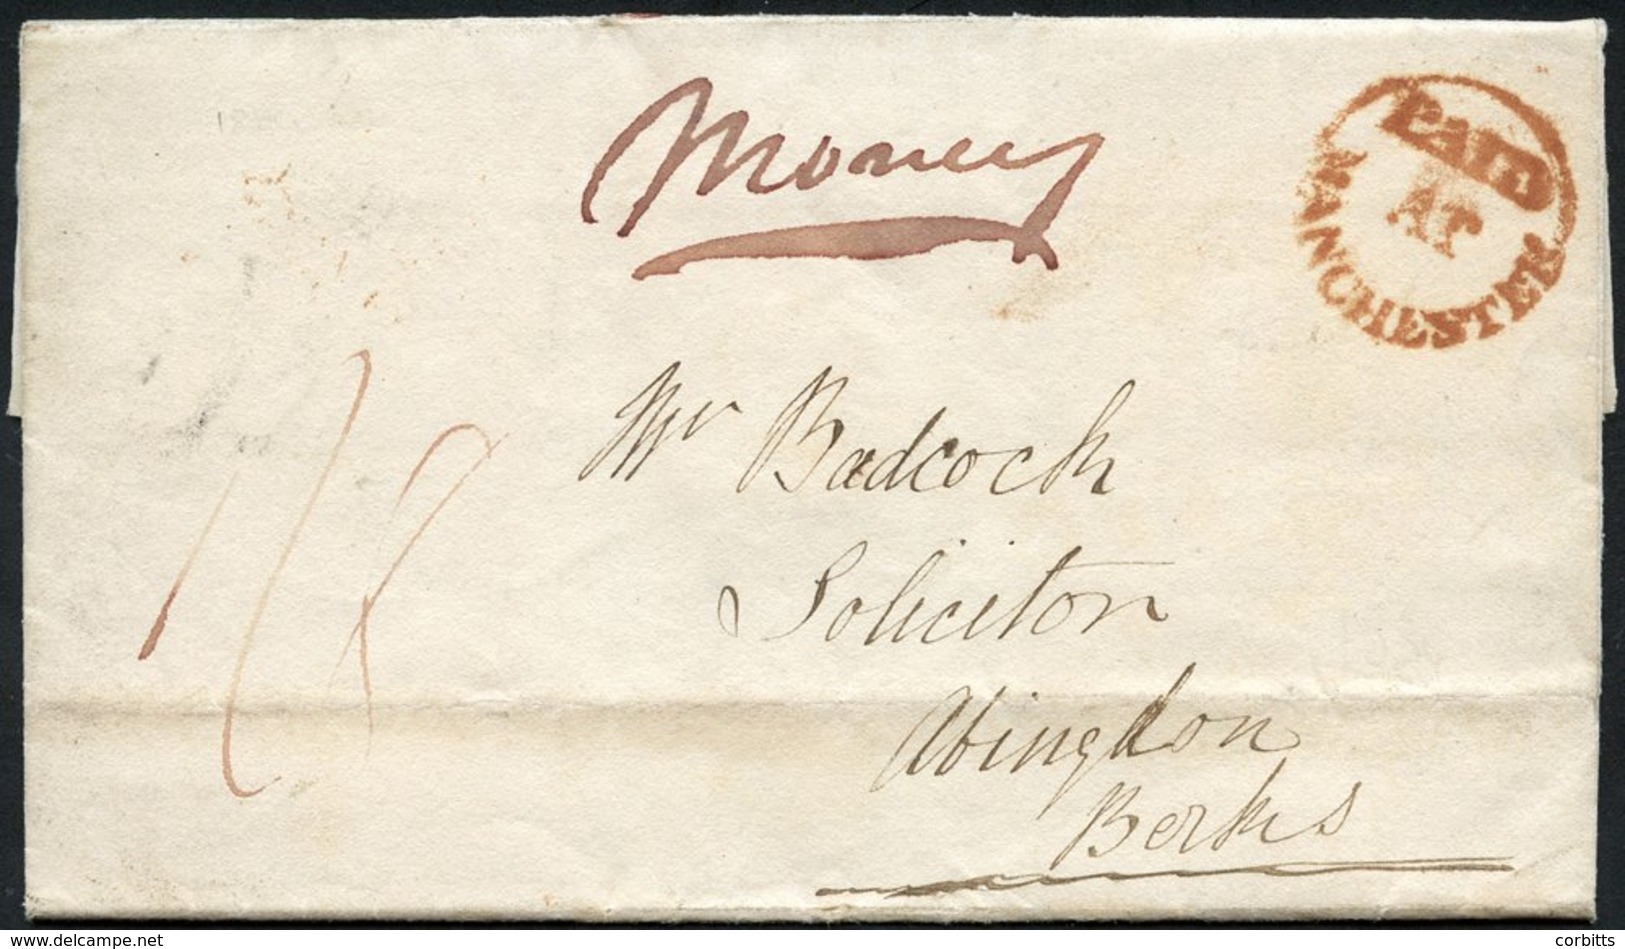 Money
PAID
AT
MANCHESTER
1/8
Mr Badcock
Solicitor
Abingdon
Berks
© picturesofengland-delcampe.net
corbitts